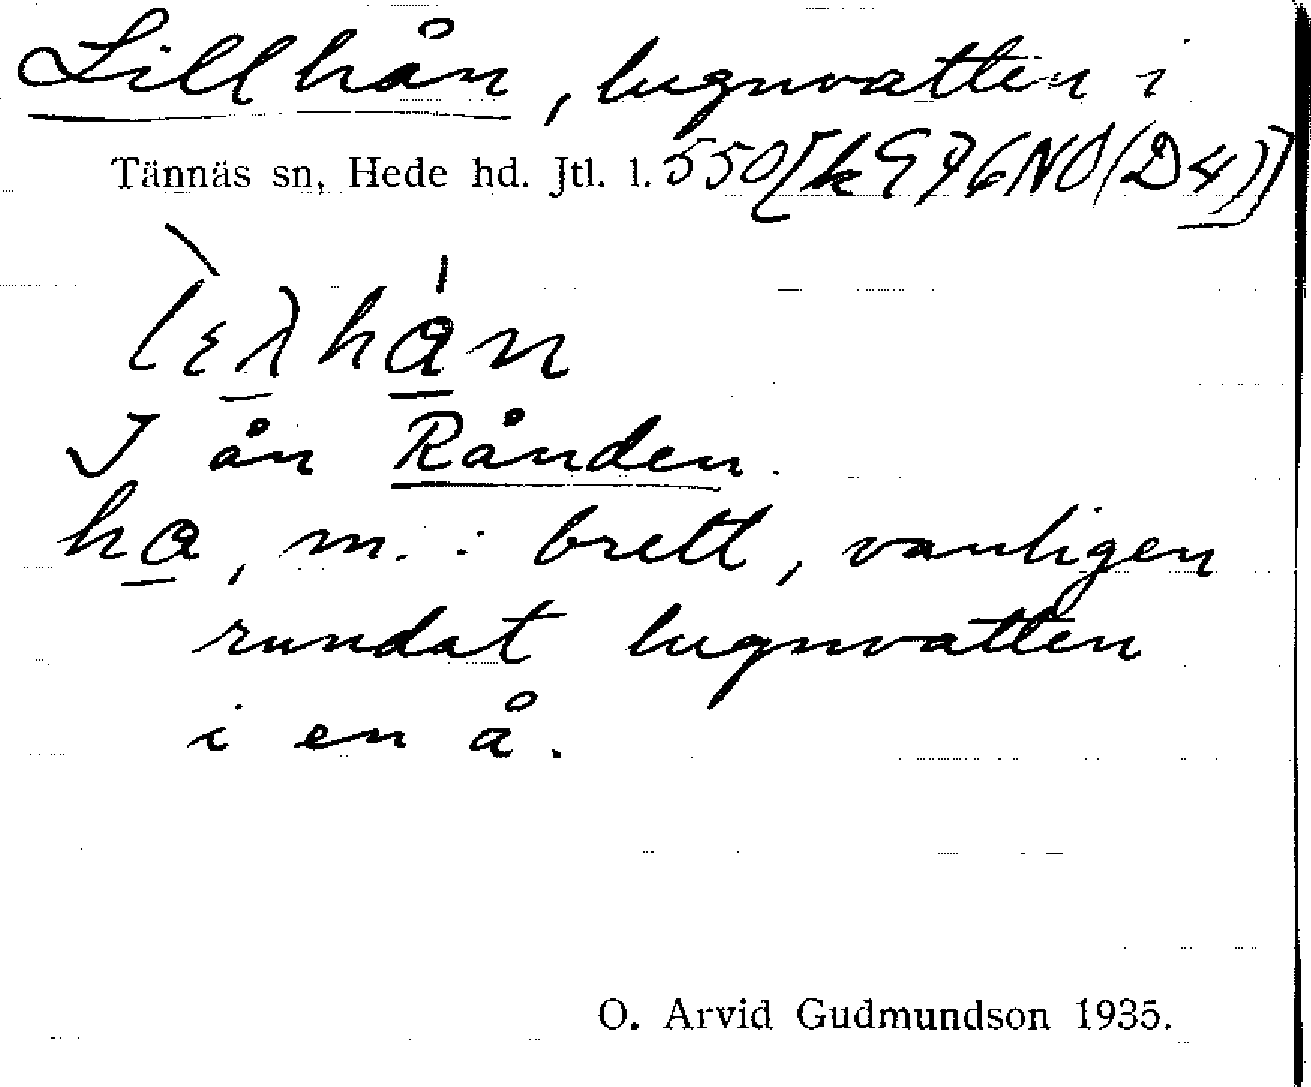 Lillhån, lugnvatten i
Tännäs sn, Hede hd. Jtl. l. 550[k 976NO(D4)]
I ån Rånden.
ha, m. : brett, vanligen
rundat lugnvatten
i en å.
O. Arvid Gudmundson 1935.